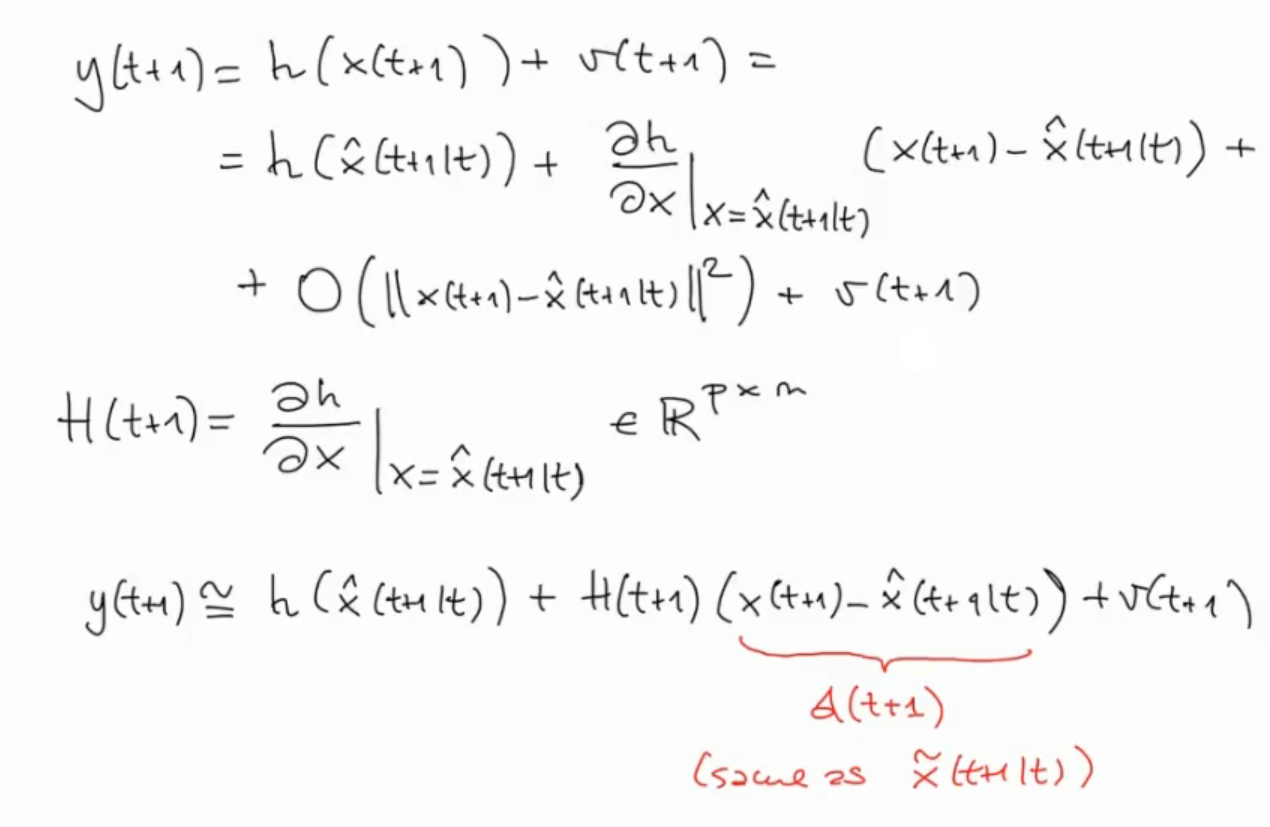 y(t+1) = h(x(t+1)) + v(t+1) =
= h(x̂(t+1|t)) + ∂h/∂x |x=x̂(t+1|t) (x(t+1) - x̂(t+1|t)) +
+ O(||x(t+1) - x̂(t+1|t)||²) + v(t+1)
H(t+1) = ∂h/∂x |x=x̂(t+1|t) ∈ ℝ^{p×n}
y(t+1) ≅ h(x̂(t+1|t)) + H(t+1)(x(t+1) - x̂(t+1|t)) + v(t+1)
Δ(t+1)
(same as x̃(t+1|t))